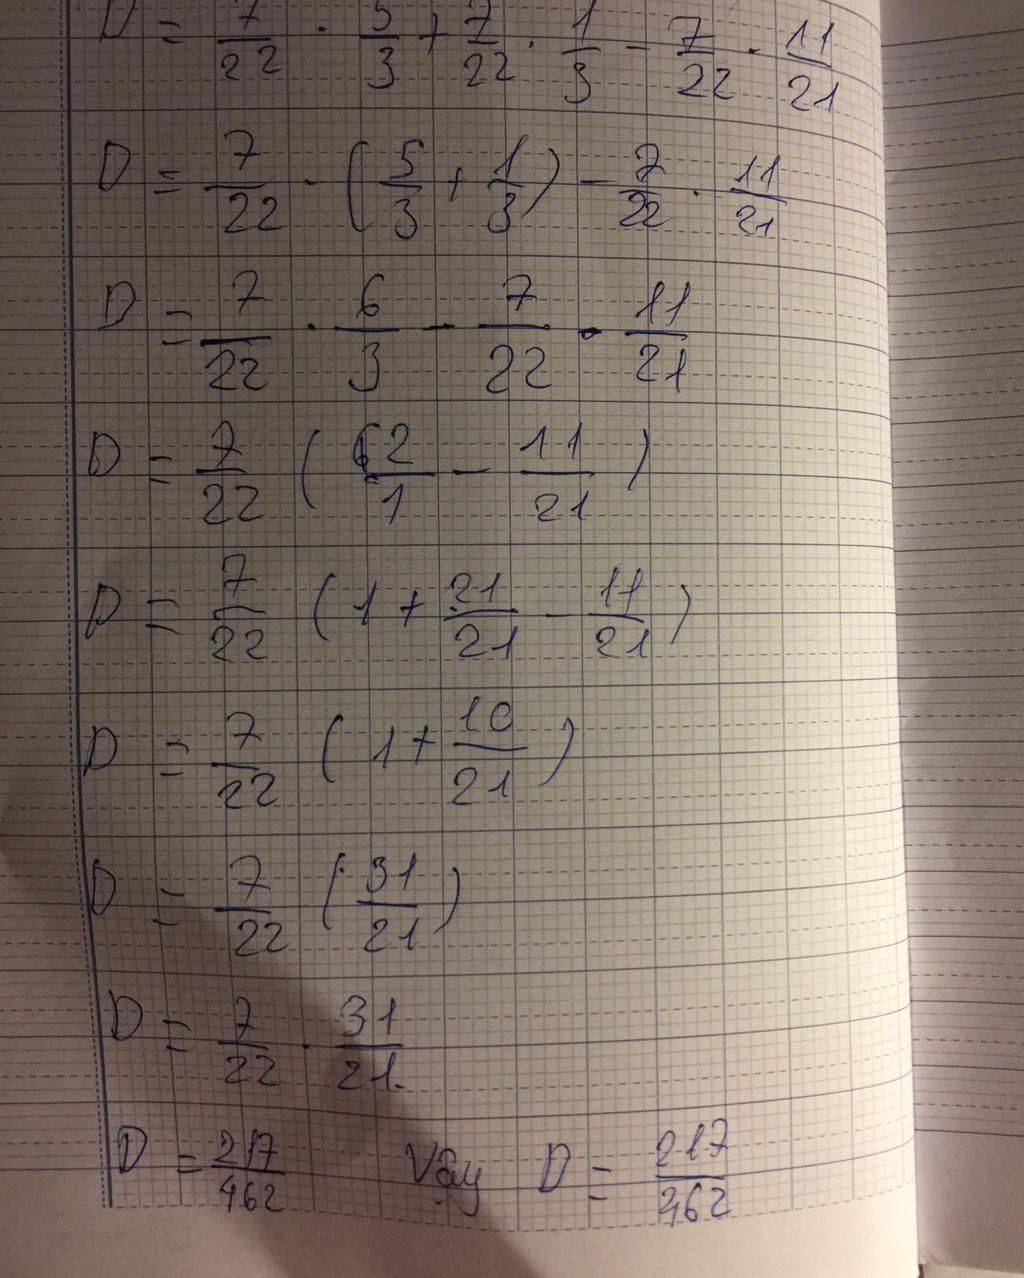 D = 7/22 · 5/3 + 7/22 · 1/3 - 7/22 · 11/21
D = 7/22 · (5/3 + 1/3) - 7/22 · 11/21
D = 7/22 · 6/3 - 7/22 · 11/21
D = 7/22 (2/1 - 11/21)
D = 7/22 (1 + 21/21 - 11/21)
D = 7/22 (1 + 10/21)
D = 7/22 (31/21)
D = 7/22 · 31/21
D = 217/462 Vậy D = 217/462